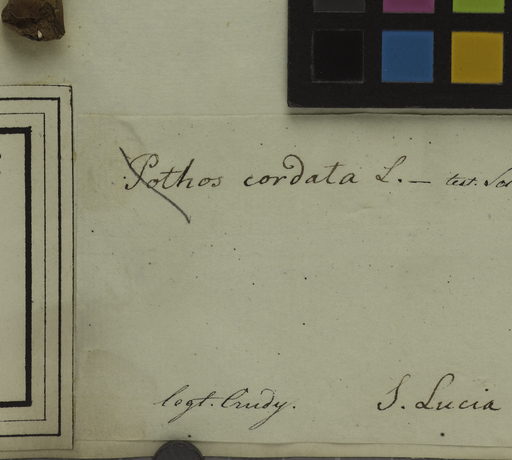 Pothos cordata L. — test.
legt. Crudy. S. Lucia